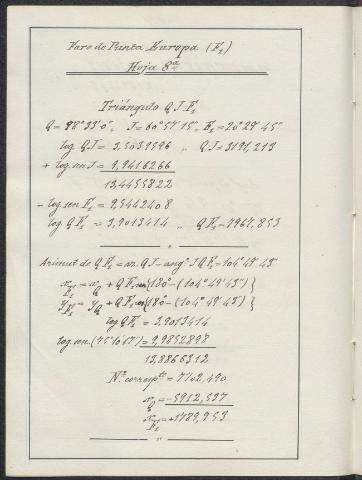 Faro de Punta Europa (F₁)
Hoja 8ª
Triángulo Q J F₁
Q = 98° 33' 0", J = 60° 57' 15", F₁ = 20° 29' 45"
log QJ = 3,5039596 ,, QJ = 3191,213
+ log sen J = 9,9416266
13,4455822
- log sen F₁ = 9,5442408
log QF₁ = 3,9013414 ,, QF₁ = 7967,853
Azimut de QF₁ = az. QJ - angº JQF₁ = 104° 49' 43"
x F₁ = x Q + QF₁ sen {180° - (104° 49' 43") }
y F₁ = y Q + QF₁ cos {180° - (104° 49' 43") }
log QF₁ = 3,9013414
log sen. (75° 10' 17") = 9,9852898
13,8866312
Nº corresp.te = 7702,490
x Q = -5912,537
x F₁ = +1789,953